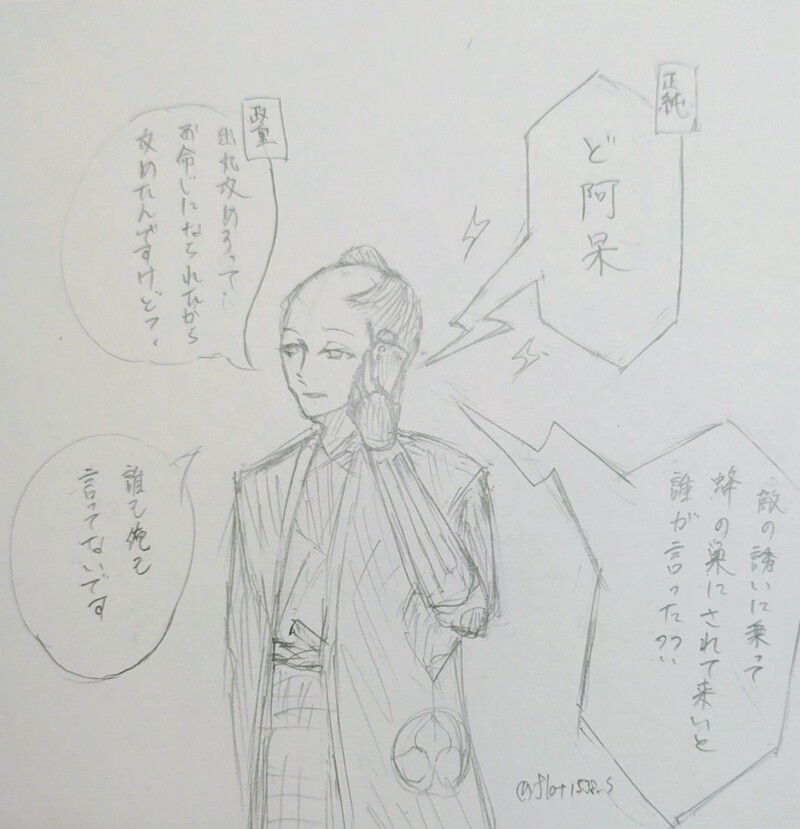 正純
ど阿呆
政重
出丸攻めろって
お命じになられたから
攻めたんですけどっ。
敵の誘いに乗って
蜂の巣にされて来いと
誰が言ったっ!!
誰も俺も
言ってないです